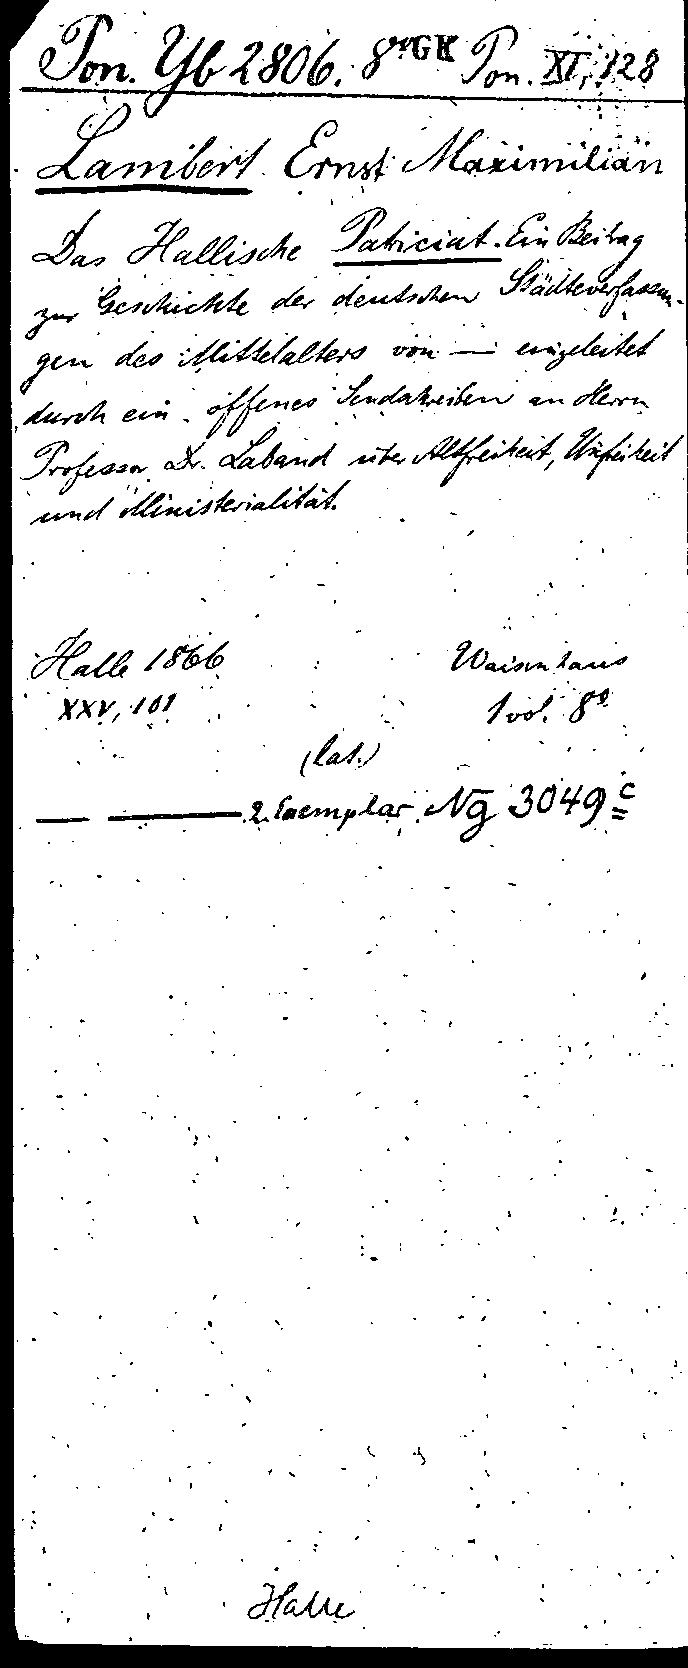 Pon. Yb 2806. 8° GK Pon. XI, 128
Lambert Ernst Maximilian
Das Hallische Patriciat. Ein Beitrag
zur Geschichte der deutschen Städteverfassun-
gen des Mittelalters von — eingeleitet
durch ein offenes Sendschreiben an Herrn
Professor Dr. Laband über Altfreiheit, Unfreiheit
und Ministerialität.
Halle 1866 Waisenhaus
XXV, 101 1 vol. 8°
(lat.)
— — 2. Exemplar Ng 3049 c
Halle